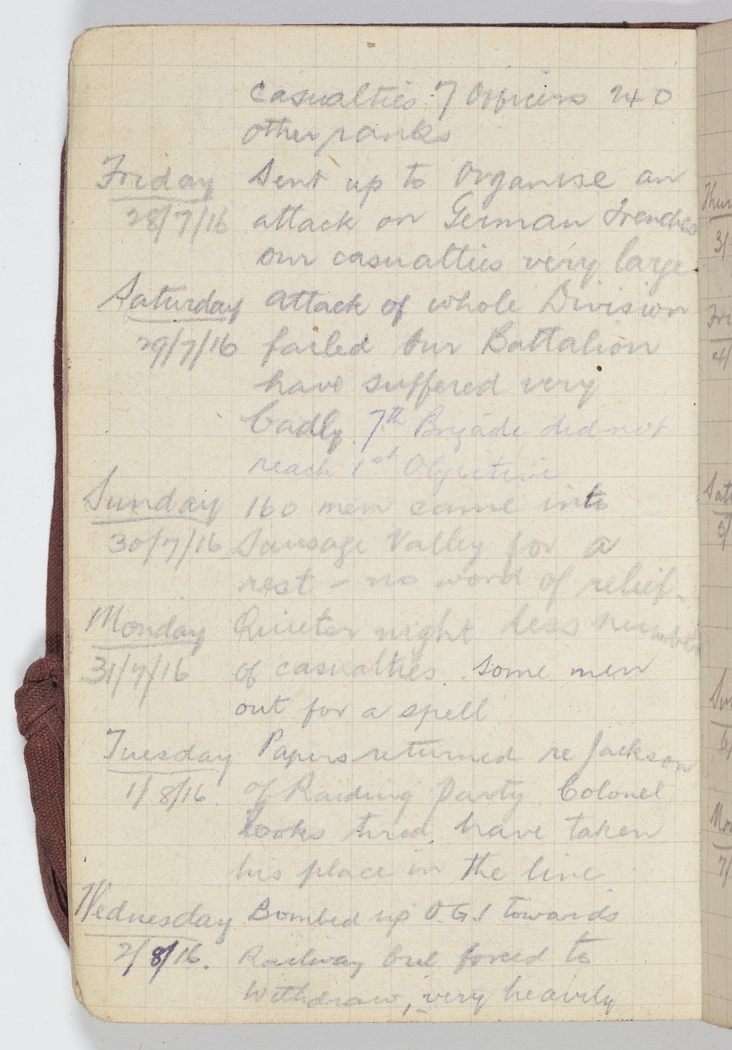 casualties 7 Officers 240
other ranks
Friday Sent up to Organise an
28/7/16 attack on German trenches
our casualties very large
Saturday attack of whole Division
29/7/16 failed Our Battalion
have suffered very
badly. 7th Brigade did not
reach 1st Objective
Sunday 160 men came into
30/7/16 Sausage Valley for a
rest - no word of relief.
Monday Quieter night less number
31/7/16 of casualties. Some men
out for a spell
Tuesday Papers returned re Jackson
1/8/16 of Raiding Party. Colonel
looks tired have taken
his place in the line
Wednesday Bombed up O.G.1 towards
2/8/16. Railway but forced to
withdraw, very heavily
Thur
3/
Fri
4/
Sat
5/
Su
6/
Mo
7/